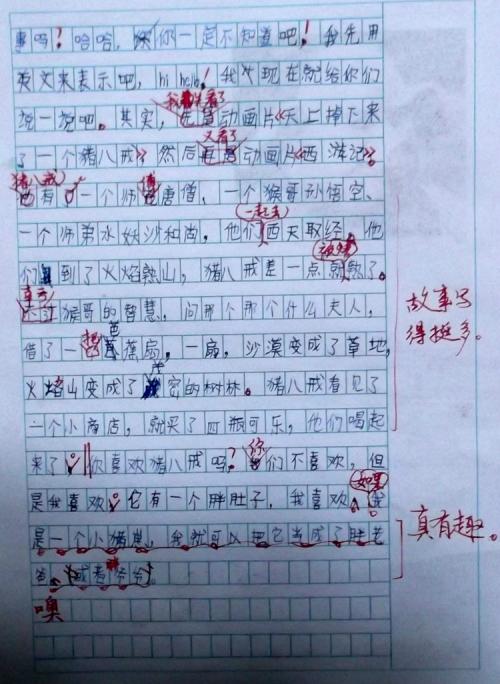 事吗！哈哈，你一定不知道吧！我先用
英文来表示吧，hi hello！我现在就给你们
说一说吧。其实，
我先看了
是动画片《天上掉下来
了一个猪八戒》然后
又看了
动画片《西游记》。
猪八戒
有一个师傅唐僧，一个猴哥孙悟空、
一个师弟水妖沙和尚，他们
一起去
西天取经，他
们到了火焰山，猪八戒差一点
就熟了。
猴哥的智慧，问那个那个什么夫人，
借了一把芭蕉扇，一扇，沙漠变成了草地，
火焰山变成了密的树林。猪八戒看见了
一个小商店，就买了四瓶可乐，他们喝起
来了。你喜欢猪八戒吗？你们不喜欢，但
是我喜欢。它有一个胖肚子，我喜欢。
如果
我
是一个小猪崽，我就可以把它当成了胖爸
爸（或者胖爷爷）。
噢
故事写
得挺多。
真有趣。